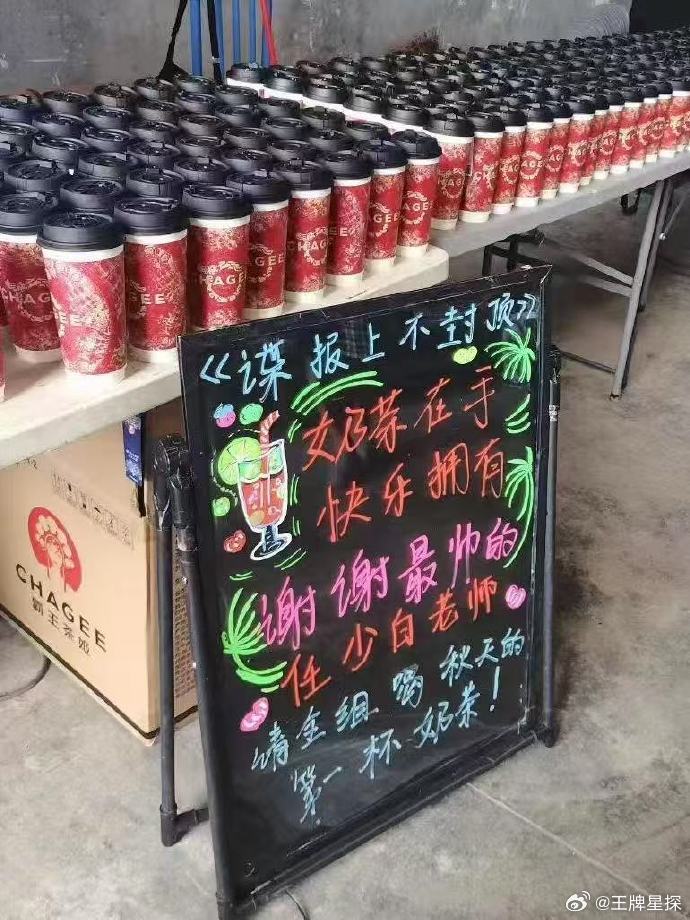 CHAGEE
CHAGEE
CHAGEE
CHAGEE
《谍报上不封顶》
奶茶在手
快乐拥有
谢谢最帅的
任少白老师
请全组喝秋天的
第一杯奶茶！
CHAGEE
霸王茶姬
@王牌星探